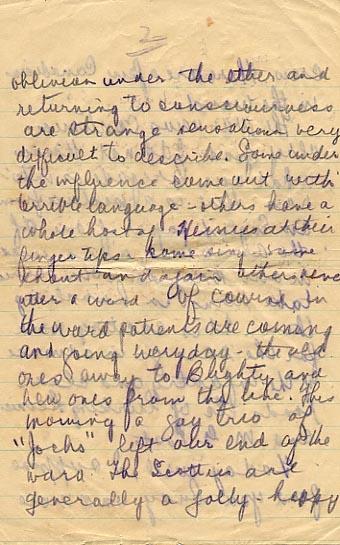 2
oblivion under the ether and
returning to consciousness
are strange sensations very
difficult to describe. Some under
the influence come out with
terrible language - others have a
whole host of Heinies at their
finger tips - some sing some
shout and again others never
utter a word. Of course in
the ward patients are coming
and going everyday - the old
ones away to Blighty and
new ones from the line. This
morning a gay trio of
"Jocks" left our end of the
ward. The Scotties are
generally a jolly happy